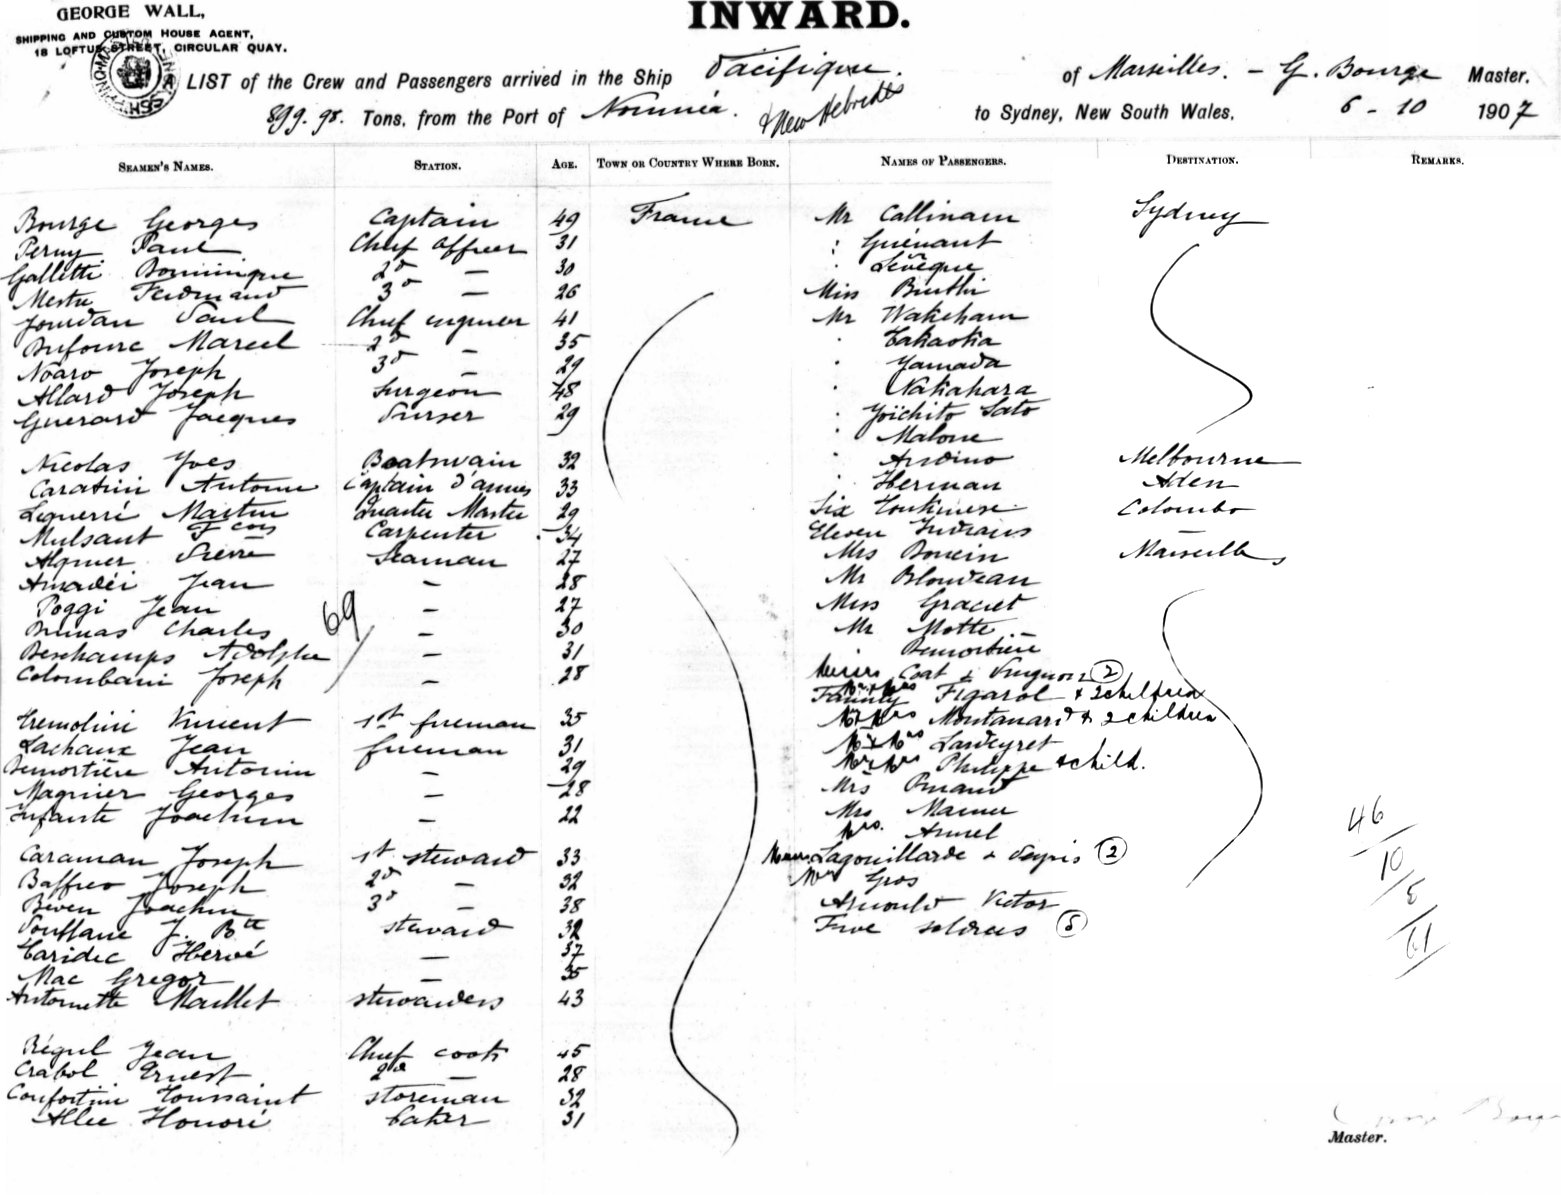 GEORGE WALL,
SHIPPING AND CUSTOM HOUSE AGENT,
18 LOFTUS STREET, CIRCULAR QUAY.
INWARD.
A LIST of the Crew and Passengers arrived in the Ship Pacifique. of Marseilles. - G. Bourge Master.
899.98. Tons, from the Port of Nouméa. & New Hebrides to Sydney, New South Wales, 6 - 10 1907
SEAMEN'S NAMES. STATION. AGE. TOWN OR COUNTRY WHERE BORN. NAMES OF PASSENGERS. DESTINATION. REMARKS.
Bourge Georges Captain 49 France Mr Callinam Sydney
Perny Paul Chief Officer 31 " Guénant
Galletti Dominique 2d — 30 " Lévêque
Mestre Ferdinand 3d — 26 Miss
Jourdan Paul Chief engineer 41 Mr Wakeham
Dufourc Marcel 2d — 35 " Takaoka
Noaro Joseph 3d — 29 " Yamada
Allard Joseph Surgeon 48 " Nakahara
Guerard Jacques Purser 29 " Yoïchito Sato
" Malone
Nicolas Yves Boatswain 32 " Andino Melbourne
Caratini Antoine Captain d'armes 33 " Herman Aden
Martin Quarter Master 29 Six Tonkinese Colombo
Mulsant Fcois Carpenter 34 Eleven Indians —
Pierre Seaman 27 Mrs Marseilles
Amadéi Jean — 28 Mr Blondeau
Poggi Jean — 27 Miss Graciet
Charles — 30 Mr Motte
Deschamps Adolphe — 31 Demortière
69
Colombani Joseph — 28 Coat & 2
Family Mr & Mrs Figarol & 2 children
Tremolini Vincent 1st fireman 35 Mr & Mrs Montanard & 2 children
Lachaux Jean fireman 31 Mr & Mrs Lardeyret
Demortière Antonin — 29 Mr & Mrs Philippe & child.
Magnier Georges — 28 Mrs
Infante Joachim — 22 Mrs
Mrs.
Caraman Joseph 1st steward 33 Lagouillarde & 2
Baffreo Joseph 2d — 32 Mr Gros
Beven Joachim 3d — 38 Arnould Victor
J. Btte steward 32 Five soldiers 5
Taridec Hervé — 37
Mac Gregor — 35
Antoinette Maillet stewardess 43
46
10
5
61
Jean Chief cook 45
Crabol Ernest 2d — 28
Confortini Toussaint storeman 32
Allee Honoré baker 31
Master.